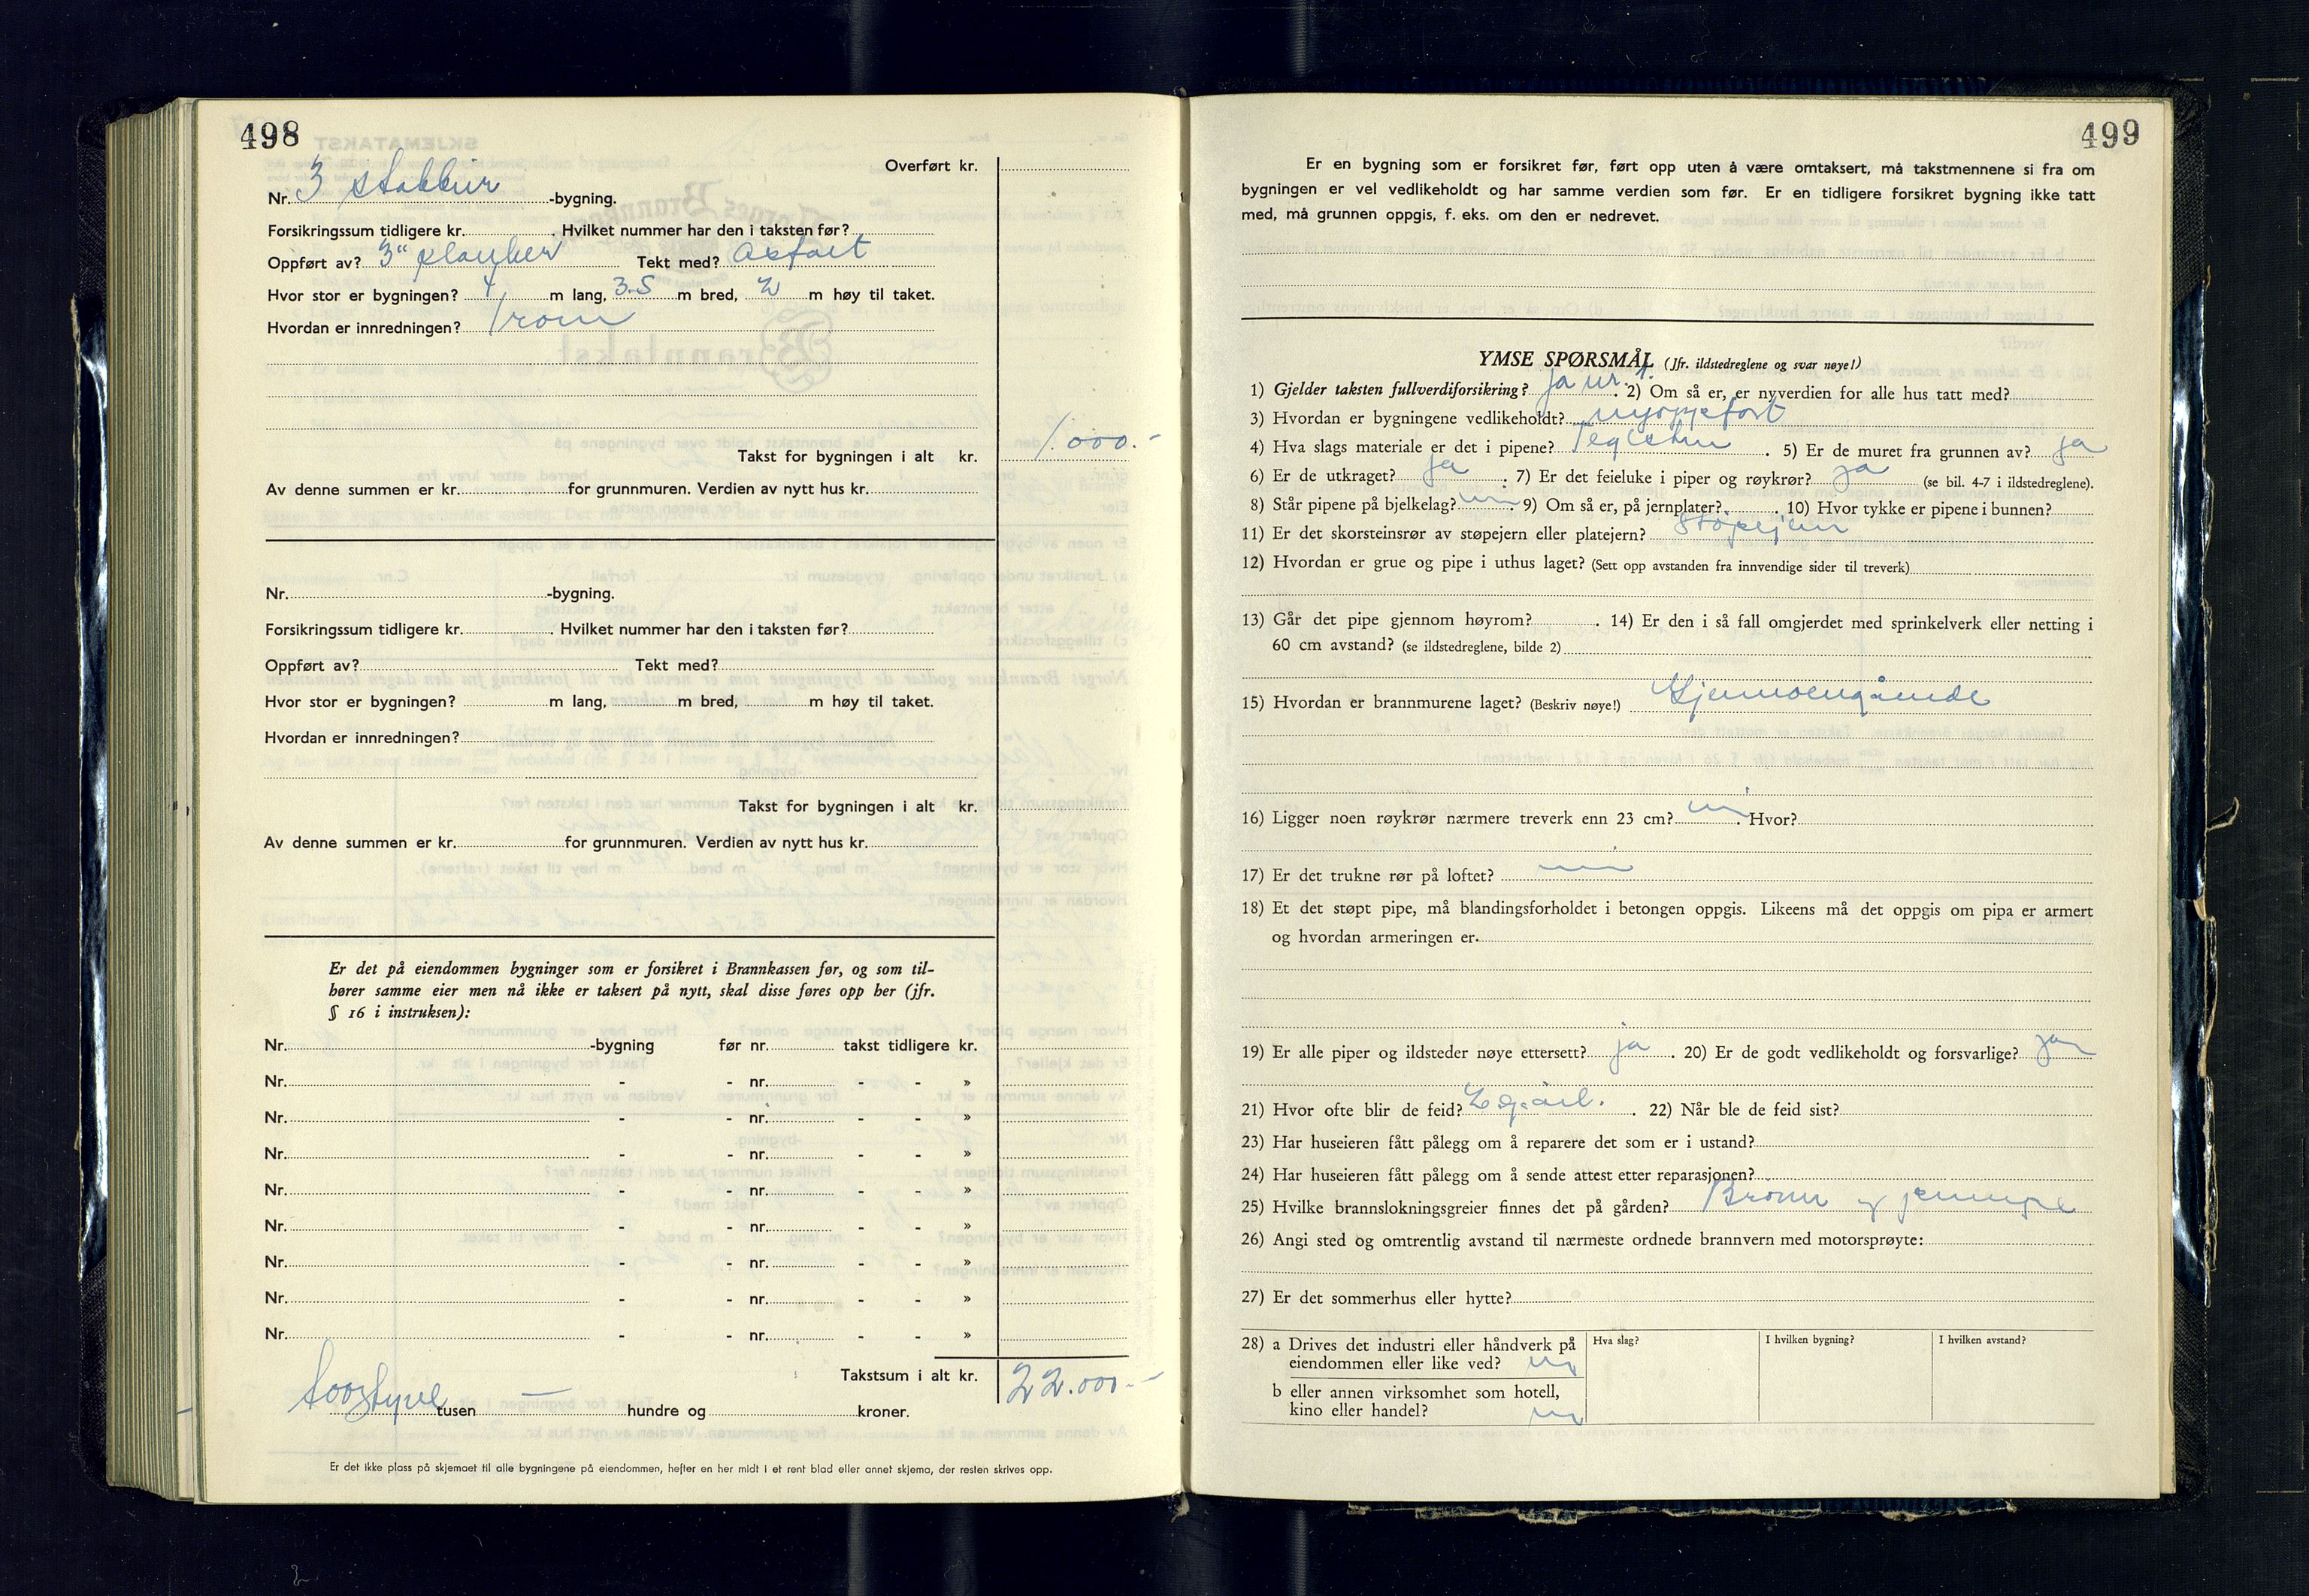 498
Overført kr.
Nr. 3 stabbur -bygning.
Forsikringssum tidligere kr. . Hvilket nummer har den i taksten før?
Oppført av? 3" planker Tekt med? Asfalt
Hvor stor er bygningen? 4 m lang, 3.5 m bred, 2 m høy til taket.
Hvordan er innredningen? 1 rom
Takst for bygningen i alt kr. 1.000.-
Av denne summen er kr. for grunnmuren. Verdien av nytt hus kr.
Nr. -bygning.
Forsikringssum tidligere kr. . Hvilket nummer har den i taksten før?
Oppført av? Tekt med?
Hvor stor er bygningen? m lang, m bred, m høy til taket.
Hvordan er innredningen?
Takst for bygningen i alt kr.
Av denne summen er kr. for grunnmuren. Verdien av nytt hus kr.
Er det på eiendommen bygninger som er forsikret i Brannkassen før, og som til-
hører samme eier men nå ikke er taksert på nytt, skal disse føres opp her (jfr.
§ 16 i instruksen):
Nr. -bygning før nr. takst tidligere kr.
Nr. - - nr. - - »
Nr. - - nr. - - »
Nr. - - nr. - - »
Nr. - - nr. - - »
Nr. - - nr. - - »
Nr. - - nr. - - »
Nr. - - nr. - - »
Nr. - - nr. - - »
Takstsum i alt kr. 22.000.-
toogtyve tusen — hundre og kroner.
Er det ikke plass på skjemaet til alle bygningene på eiendommen, hefter en her midt i et rent blad eller annet skjema, der resten skrives opp.
499
Er en bygning som er forsikret før, ført opp uten å være omtaksert, må takstmennene si fra om
bygningen er vel vedlikeholdt og har samme verdien som før. Er en tidligere forsikret bygning ikke tatt
med, må grunnen oppgis, f. eks. om den er nedrevet.
YMSE SPØRSMÅL (Jfr. ildstedreglene og svar nøye!)
1) Gjelder taksten fullverdiforsikring? ja nr. 1. . 2) Om så er, er nyverdien for alle hus tatt med?
3) Hvordan er bygningene vedlikeholdt? nyoppført
4) Hva slags materiale er det i pipene? Teglsten . 5) Er de muret fra grunnen av? ja
6) Er de utkraget? ja . 7) Er det feieluke i piper og røykrør? ja (se bil. 4-7 i ildstedreglene).
8) Står pipene på bjelkelag? nei . 9) Om så er, på jernplater? . 10) Hvor tykke er pipene i bunnen?
11) Er det skorsteinsrør av støpejern eller platejern? støpejern
12) Hvordan er grue og pipe i uthus laget? (Sett opp avstanden fra innvendige sider til treverk)
13) Går det pipe gjennom høyrom? . 14) Er den i så fall omgjerdet med sprinkelverk eller netting i
60 cm avstand? (se ildstedreglene, bilde 2)
15) Hvordan er brannmurene laget? (Beskriv nøye!) Gjennemgående
16) Ligger noen røykrør nærmere treverk enn 23 cm? nei . Hvor?
17) Er det trukne rør på loftet? nei
18) Et det støpt pipe, må blandingsforholdet i betongen oppgis. Likeens må det oppgis om pipa er armert
og hvordan armeringen er.
19) Er alle piper og ildsteder nøye ettersett? ja . 20) Er de godt vedlikeholdt og forsvarlige? ja
21) Hvor ofte blir de feid? 2 g. årl. . 22) Når ble de feid sist?
23) Har huseieren fått pålegg om å reparere det som er i ustand?
24) Har huseieren fått pålegg om å sende attest etter reparasjonen?
25) Hvilke brannslokningsgreier finnes det på gården? Brønn og pumpe
26) Angi sted og omtrentlig avstand til nærmeste ordnede brannvern med motorsprøyte:
27) Er det sommerhus eller hytte?
28) a Drives det industri eller håndverk på Hva slag? I hvilken bygning? I hvilken avstand?
eiendommen eller like ved? nei
b eller annen virksomhet som hotell,
kino eller handel? nei